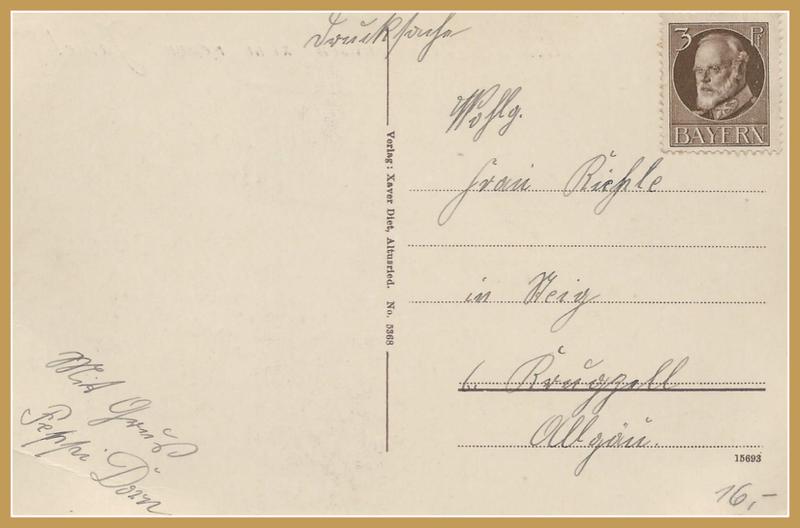 Drucksache
3 Pf
BAYERN
Wohlg.
Frau Riehle
in Steig
b. Krugzell
Allgäu.
Verlag: Xaver Diet, Altusried. No. 5368
Mit Gruß
Peppi Dorn
15693
16,-